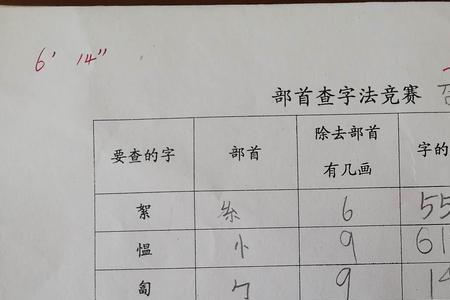 6' 14"
部首查字法竞赛
要查的字 部首 除去部首有几画 字的
絮 糸 6 55
愠 忄 9 61
匐 勹 9 14